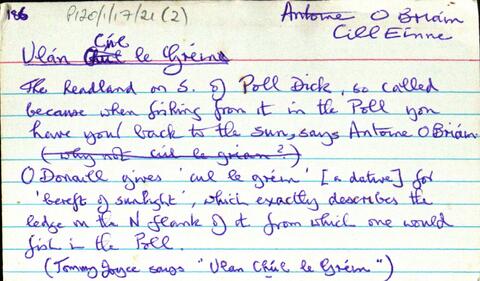 186 P120/1/17/21 (2) Antoine O Briain
Cill Einne
Ulán Cúl le Gréin
The Headland on S. of Poll Dick, so called
because when fishing from it in the Poll you
have your back to the sun, says Antoine O Briáin
(why not cúl le grian?)
O Donaill gives 'cul le gréin' [a dative] for
'bereft of sunlight', which exactly describes the
ledge on the N flank of it from which one would
fish in the Poll.
(Tommy Joyce says "Ulan Chúl le Gréin")